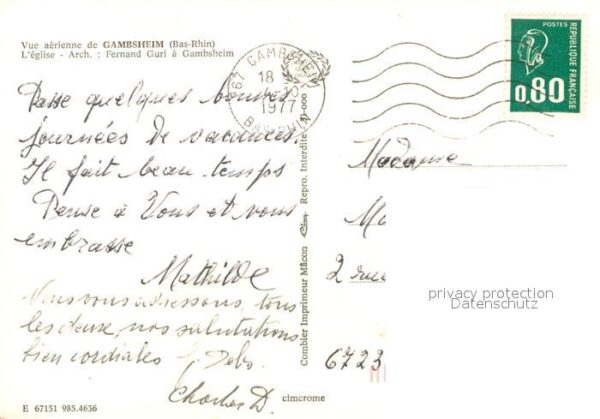 Vue aérienne de GAMBSHEIM (Bas-Rhin)
L'église - Arch. : Fernand Guri à Gambsheim
67 GAMBSHEIM
18
1977
BAS-RHIN
POSTES
REPUBLIQUE FRANÇAISE
0,80
Passe quelques bonnes
journées de vacances.
Il fait beau temps
Pense à Vous et vous
embrasse
Mathilde
Nous vous adressons, tous
les deux, nos salutations
bien cordiales
Charles D.
Combier Imprimeur Mâcon Repro. Interdite
Madame
M
2 rue
privacy protection
Datenschutz
6723
cimcrome
E 67151 985.4636